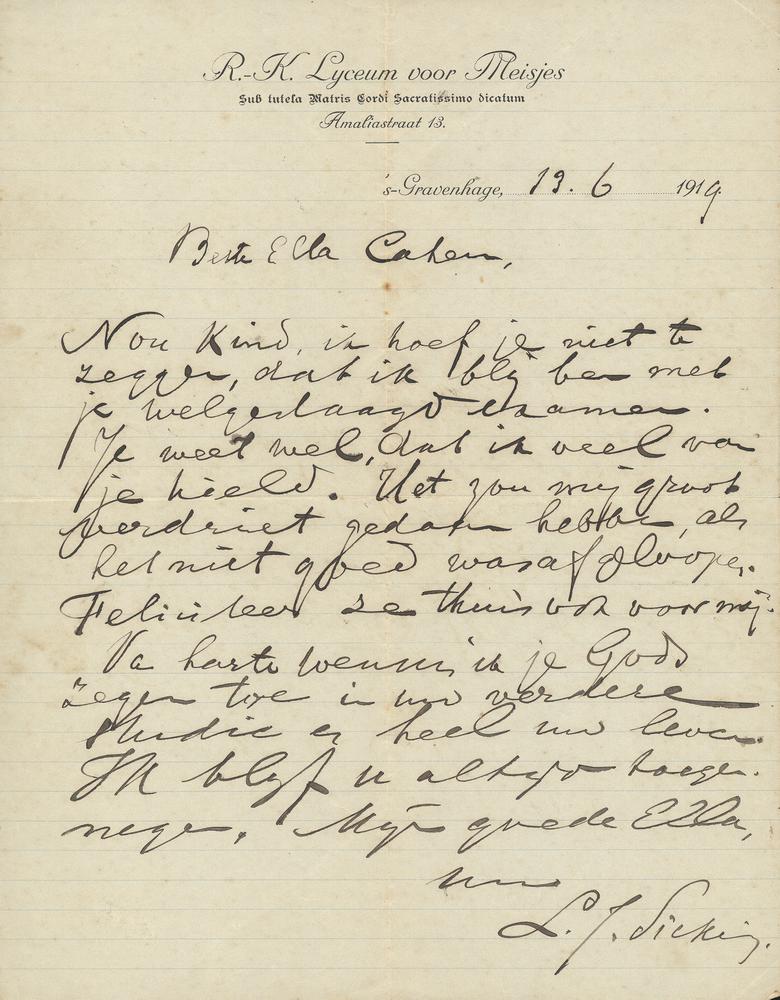 R.-K. Lyceum voor Meisjes
Sub tutela Matris Cordi Sacratissimo dicatum
Amaliastraat 13.
's-Gravenhage, 19. 6 1919.
Beste Ella Cahen,
Nou Kind, ik hoef je niet te
zeggen, dat ik blij ben met
je welgeslaagd examen.
Je weet wel, dat ik veel van
je hield. Het zou mij groot
verdriet gedaan hebben, als
het niet goed was afgeloopen.
Feliciteer ze thuis ook voor mij.
Van harte wensch ik je Gods
zegen toe in uw verdere
studie en heel uw leven.
Ik blijf u altijd toege-
negen. Mijn goede Ella,
uw
L. J. Sicking.